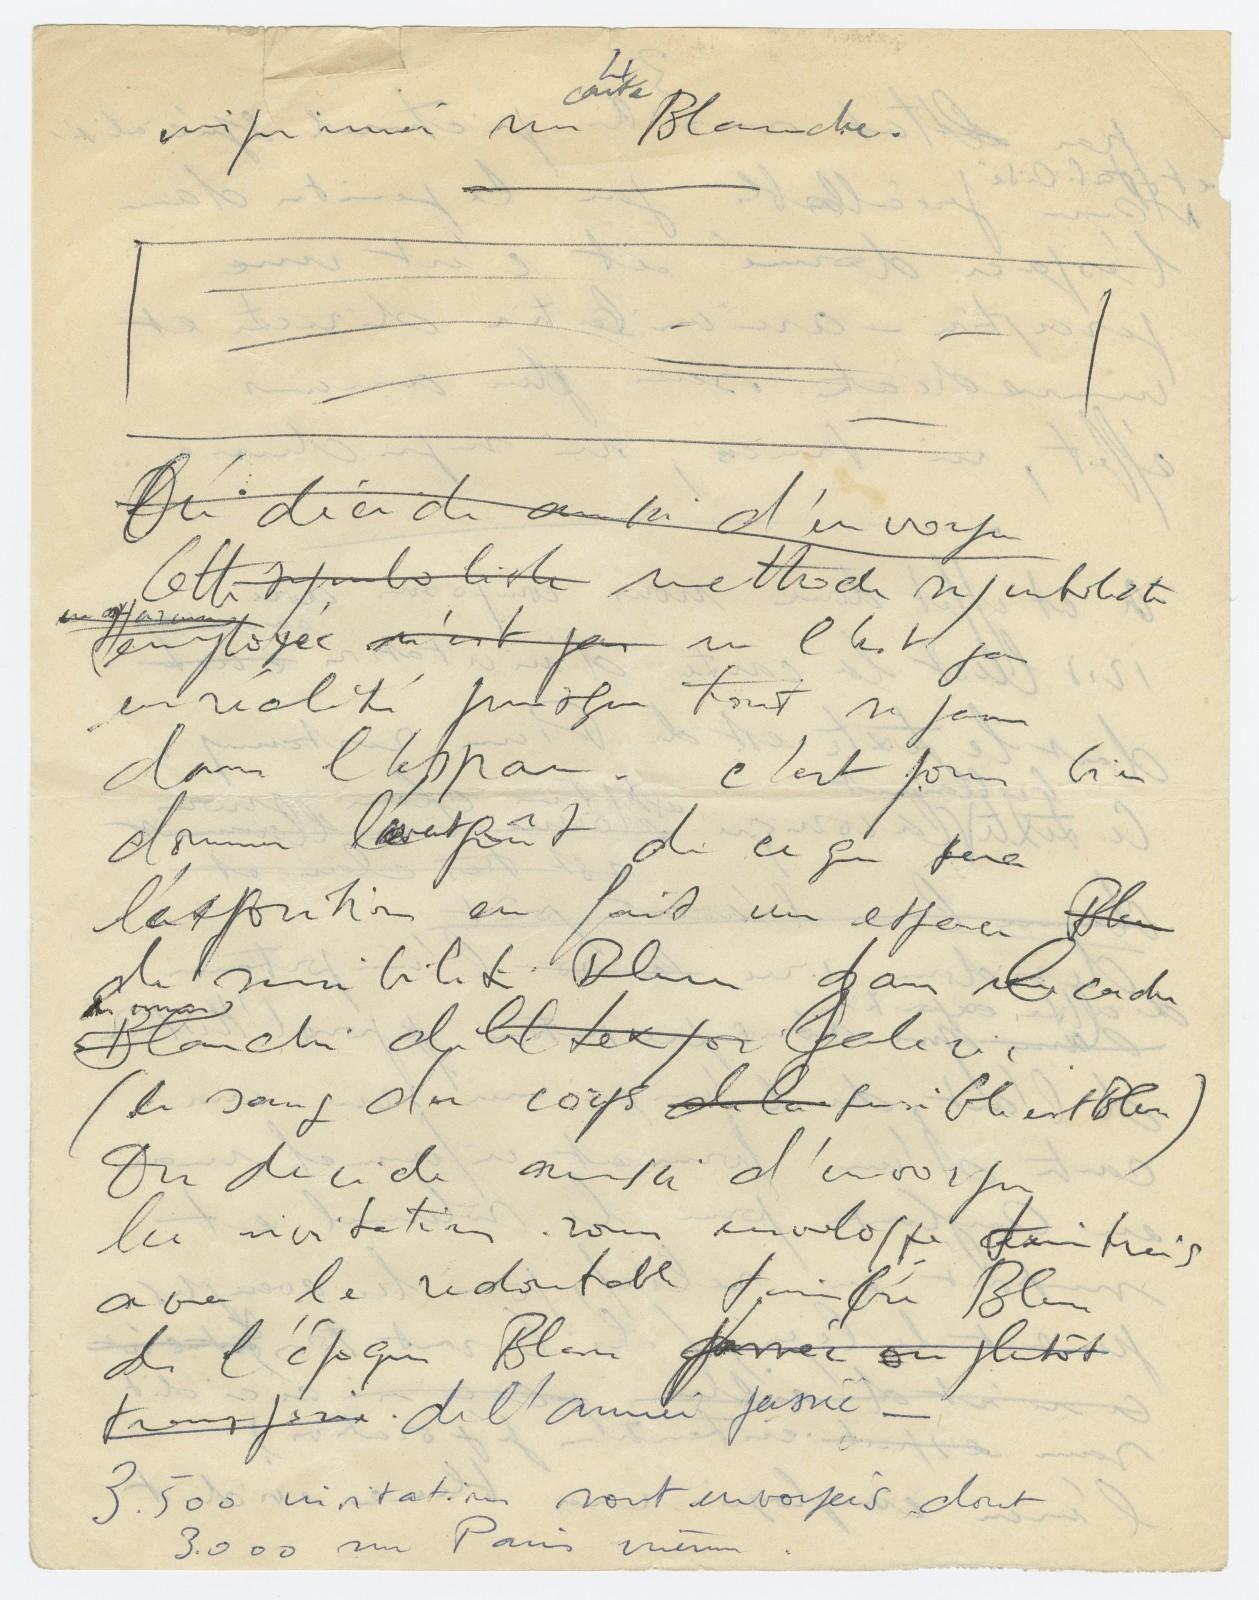 4
carte
imprimée sur Blanche.
On décide aussi d'envoyer
Cette symboliste methode symboliste
employée n'est pas ne l'est pas
en réalité puisque tout se passe
dans l'espace. c'est pour bien
donner l'avant goût de ce que sera
l'exposition en fait un espace Bleu
de sensibilité Bleu dans le cadre
Blanchi de la Galerie.
(le sang du corps de la sensibilité est Bleu)
On decide aussi d'envoyer
les invitations sous enveloppe timbrées
avec le redoutable timbre Bleu
de l'époque Bleue passée ou plutôt
de l'année passée —
3.500 invitations sont envoyées dont
3.000 sur Paris même.